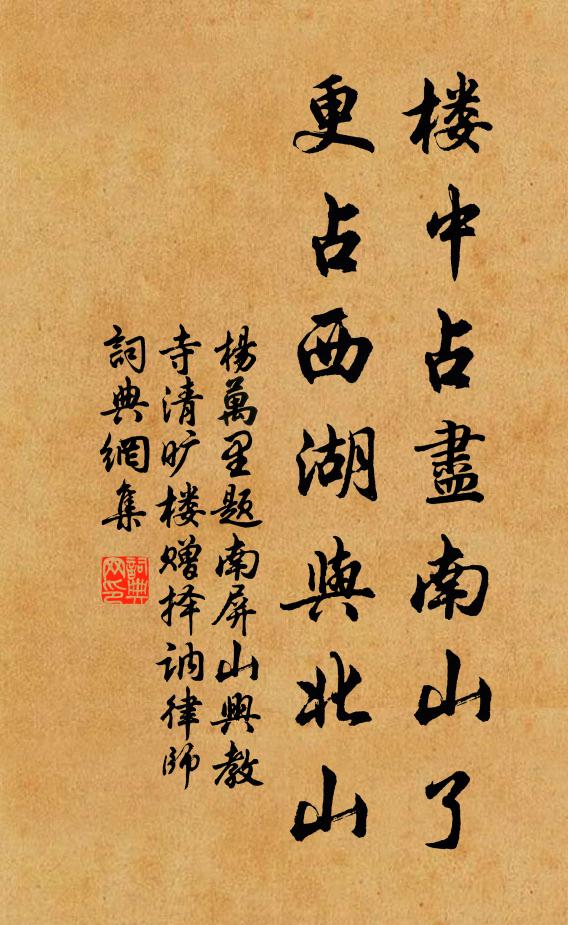 楼中占盡南山了
更占西湖與北山
楊萬里题南屏山興教
寺清旷楼赠择讷律師
詞典網集
詞典网印